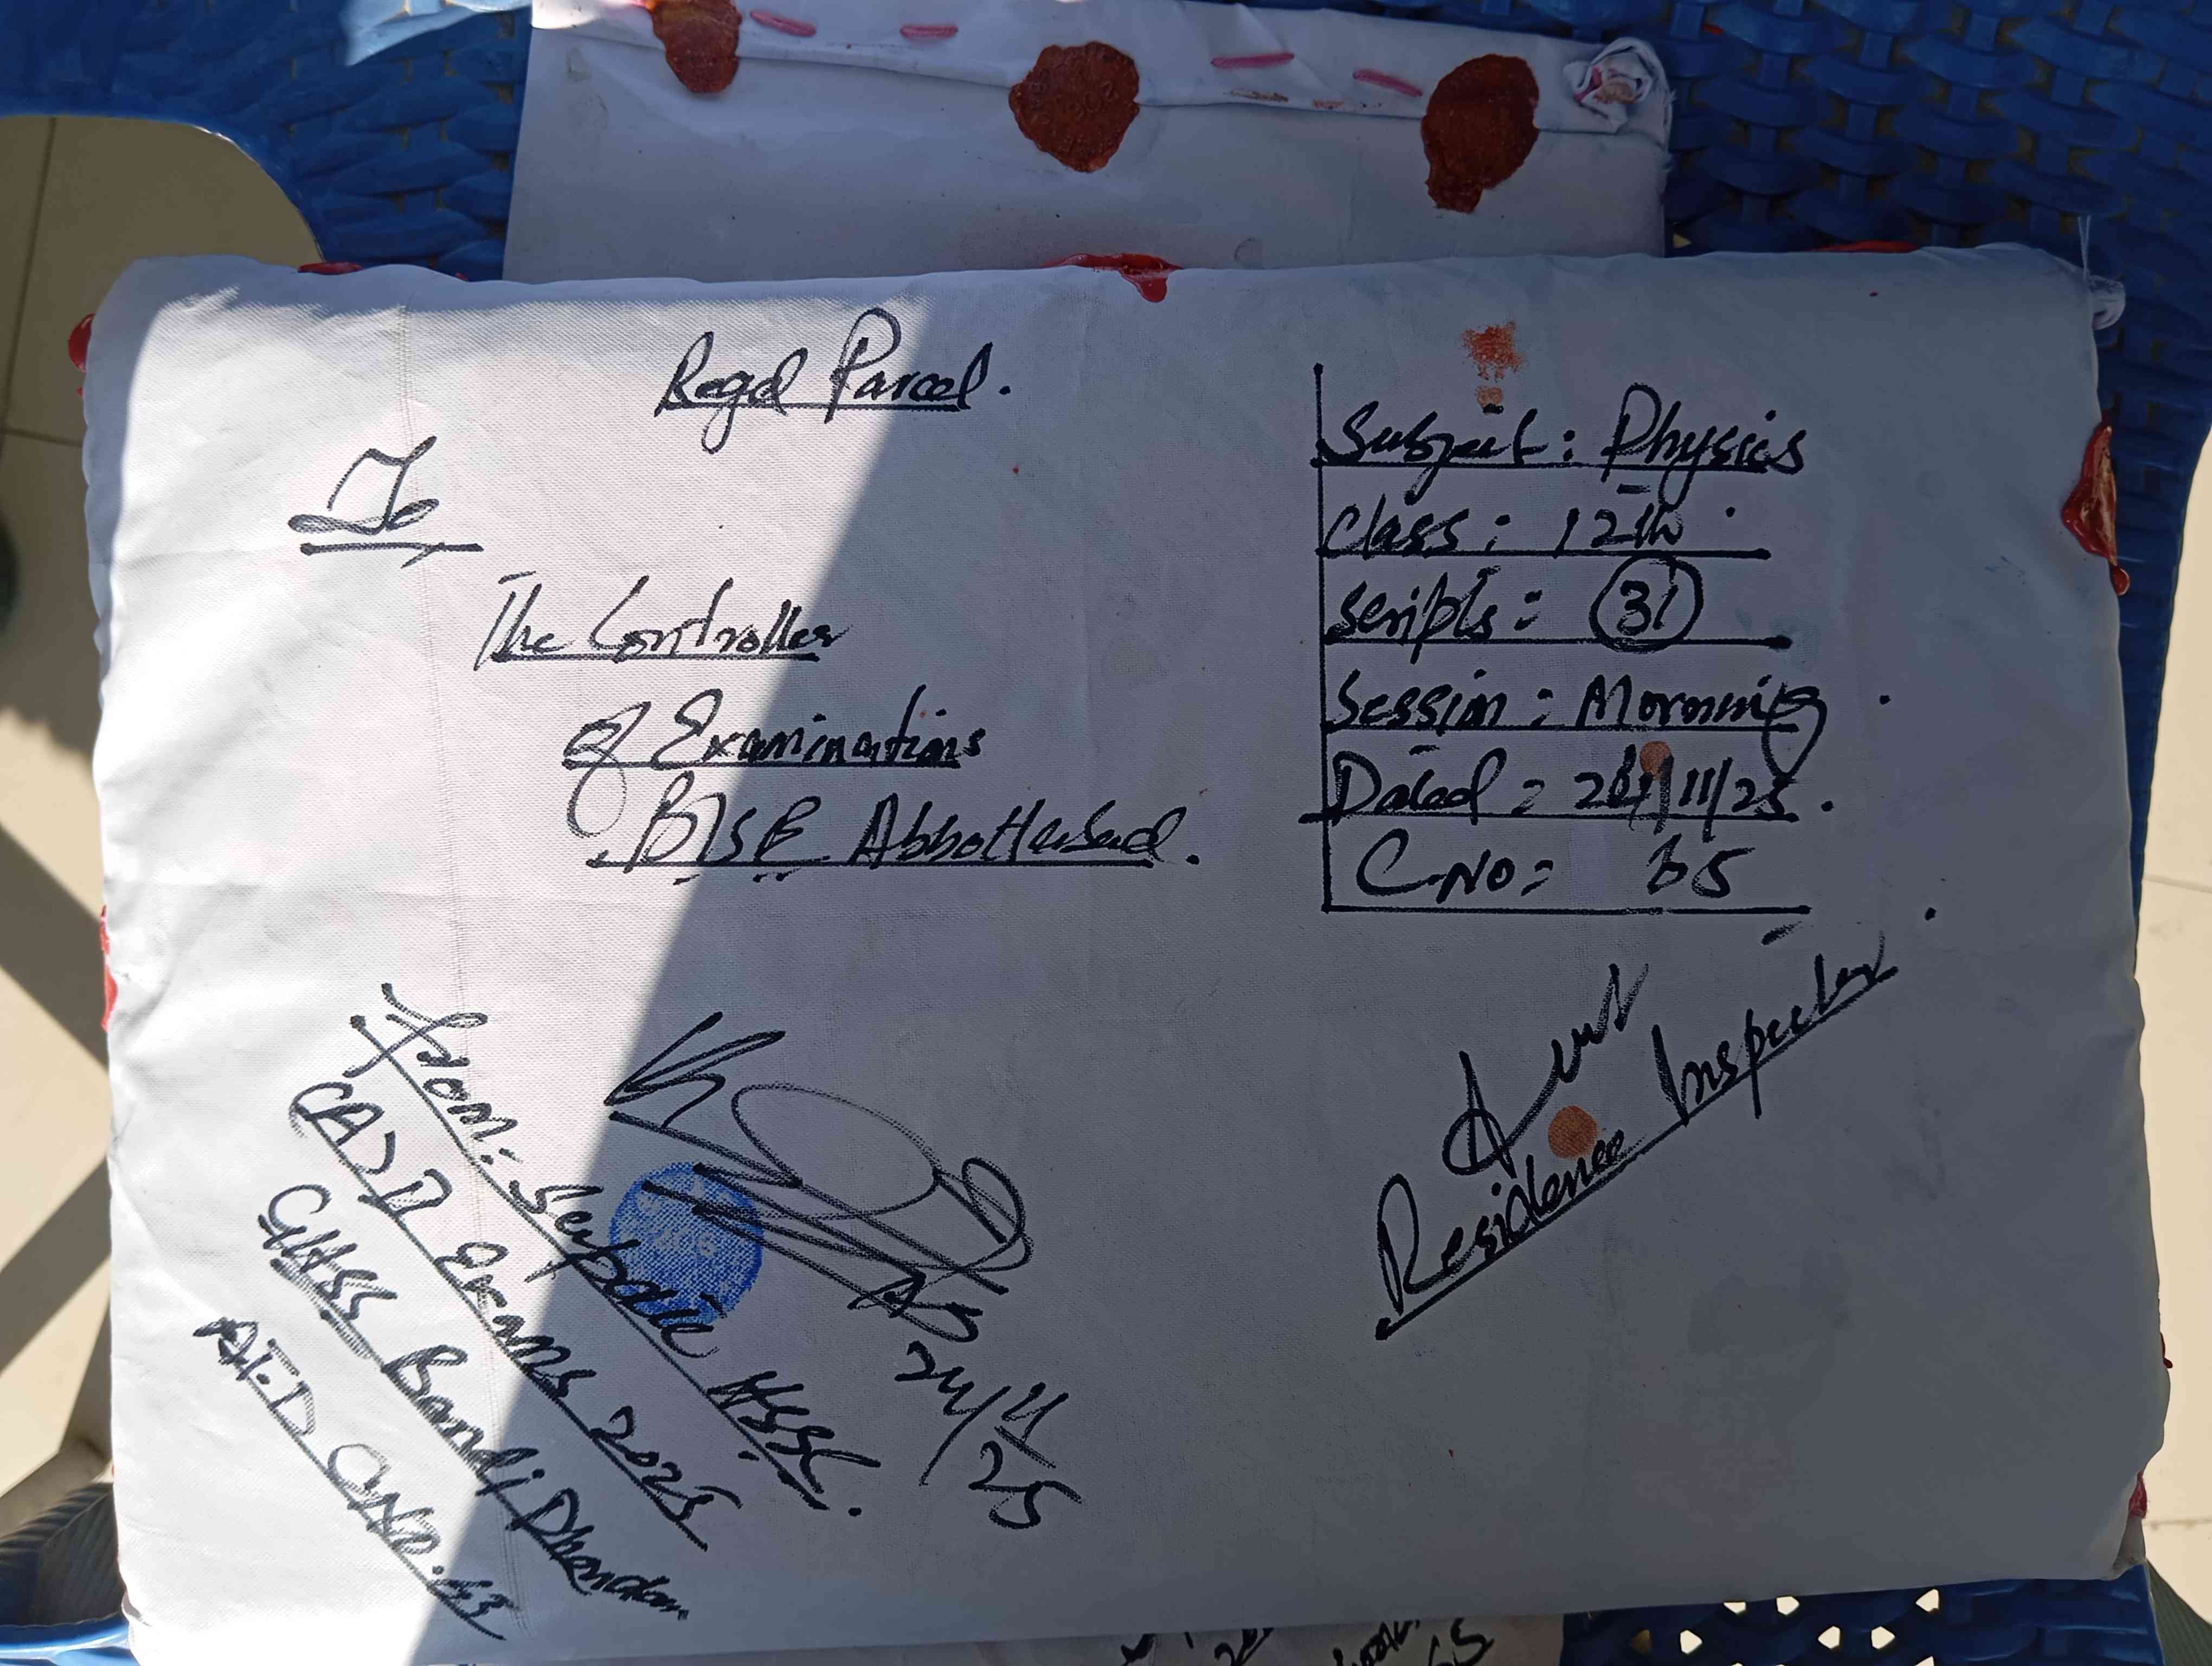 Regd Parcel.
To
The Controller
of Examinations
BISE Abbottabad.
Subject: Physics
Class: 12th
Scripts: 31
Session: Morning
Dated: /11/25.
C.NO: 65
From: Supdt: HSSC.
(A) II Exams 2025
GHSS Bandi Dhundan
A.T.D C.NO.
24/11/25
Residence Inspector